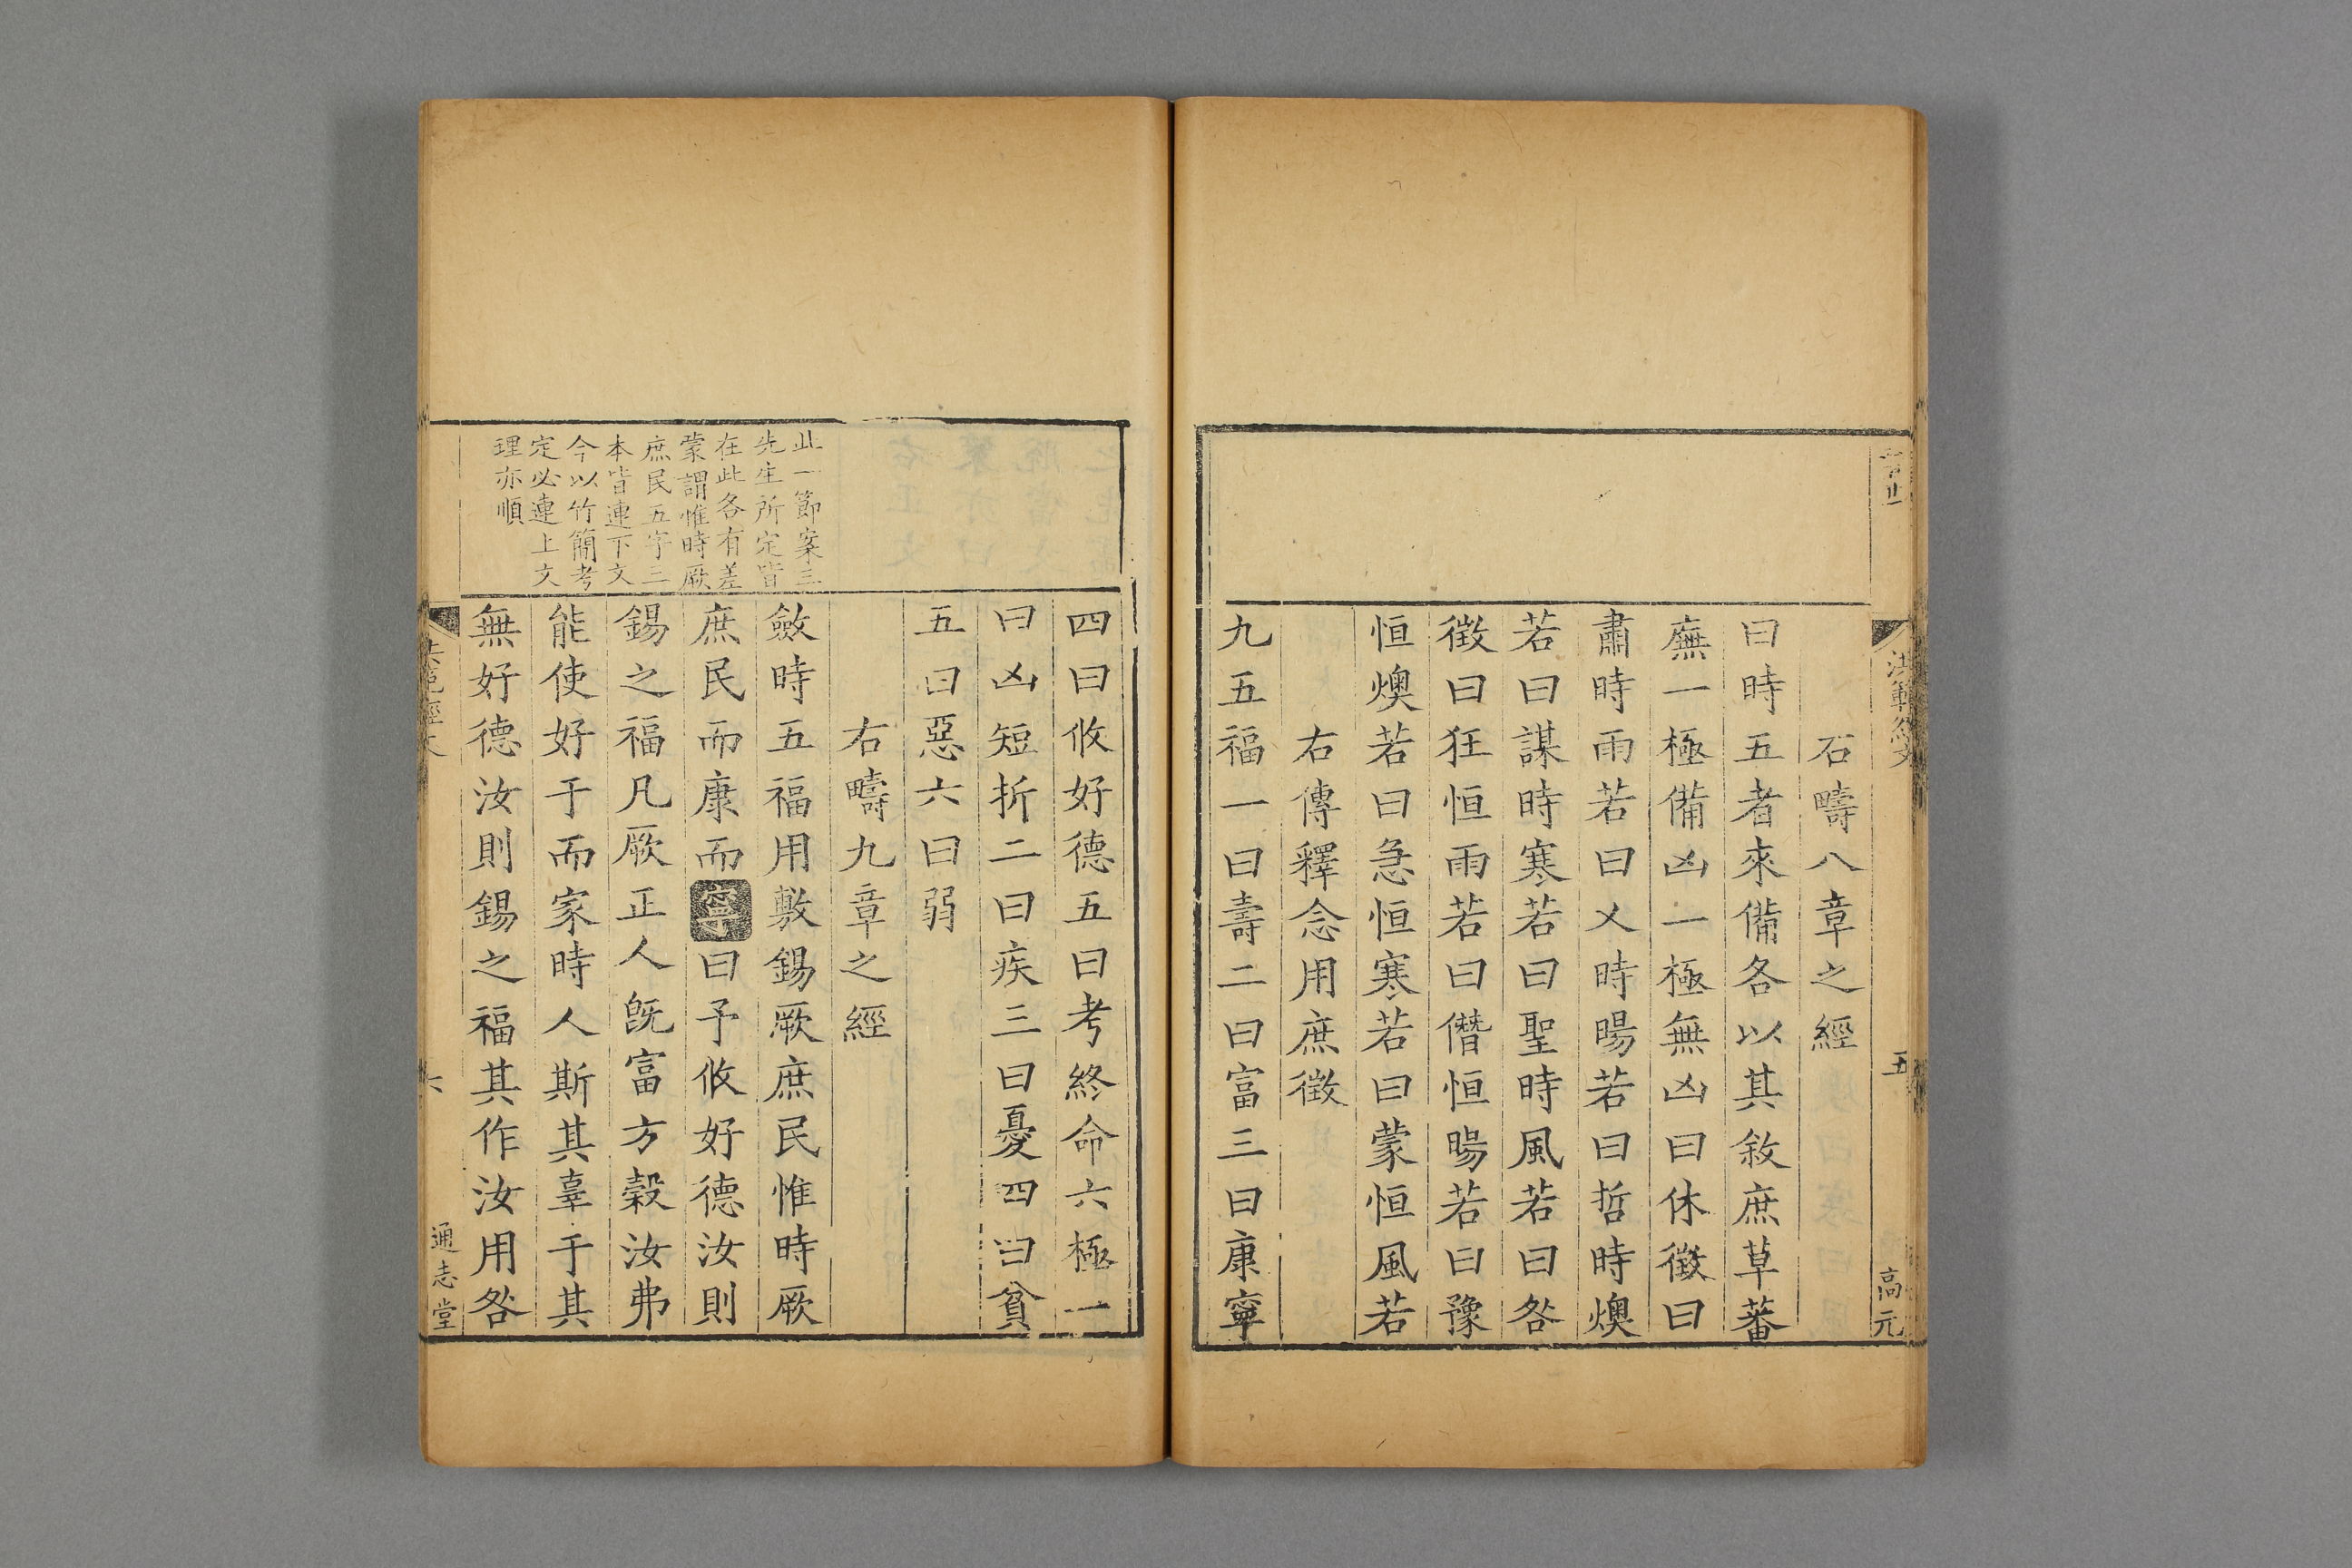 洪範經文
五
高元
右疇八章之經
曰時五者來備各以其敘庶草蕃
廡一極備凶一極無凶曰休徵曰
肅時雨若曰乂時暘若曰哲時燠
若曰謀時寒若曰聖時風若曰咎
徵曰狂恒雨若曰僭恒暘若曰豫
恒燠若曰急恒寒若曰蒙恒風若
右傳釋念用庶徵
九五福一曰壽二曰富三曰康寧
四曰攸好德五曰考終命六極一
曰凶短折二曰疾三曰憂四曰貧
五曰惡六曰弱
右疇九章之經
此一節案三
先生所定皆
在此各有差
蒙謂惟時厥
庶民五字三
本皆連下文
今以竹簡考
定必連上文
理亦順
斂時五福用敷錫厥庶民惟時厥
庶民而康而寧曰予攸好德汝則
錫之福凡厥正人既富方穀汝弗
能使好于而家時人斯其辜于其
無好德汝則錫之福其作汝用咎
洪範經文
六
通志堂